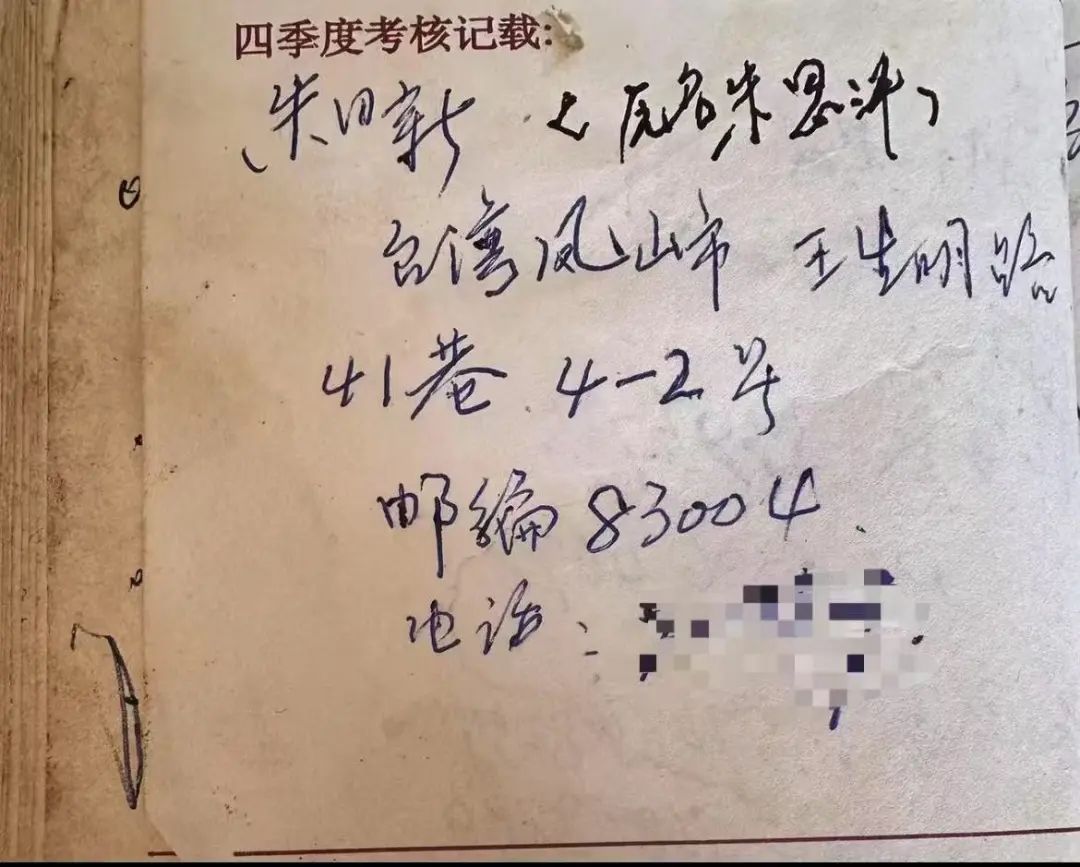 四季度考核记载:
朱日新 (原名朱恩沛)
台湾凤山市 王生明路
41巷 4-2号
邮编83004
电话: